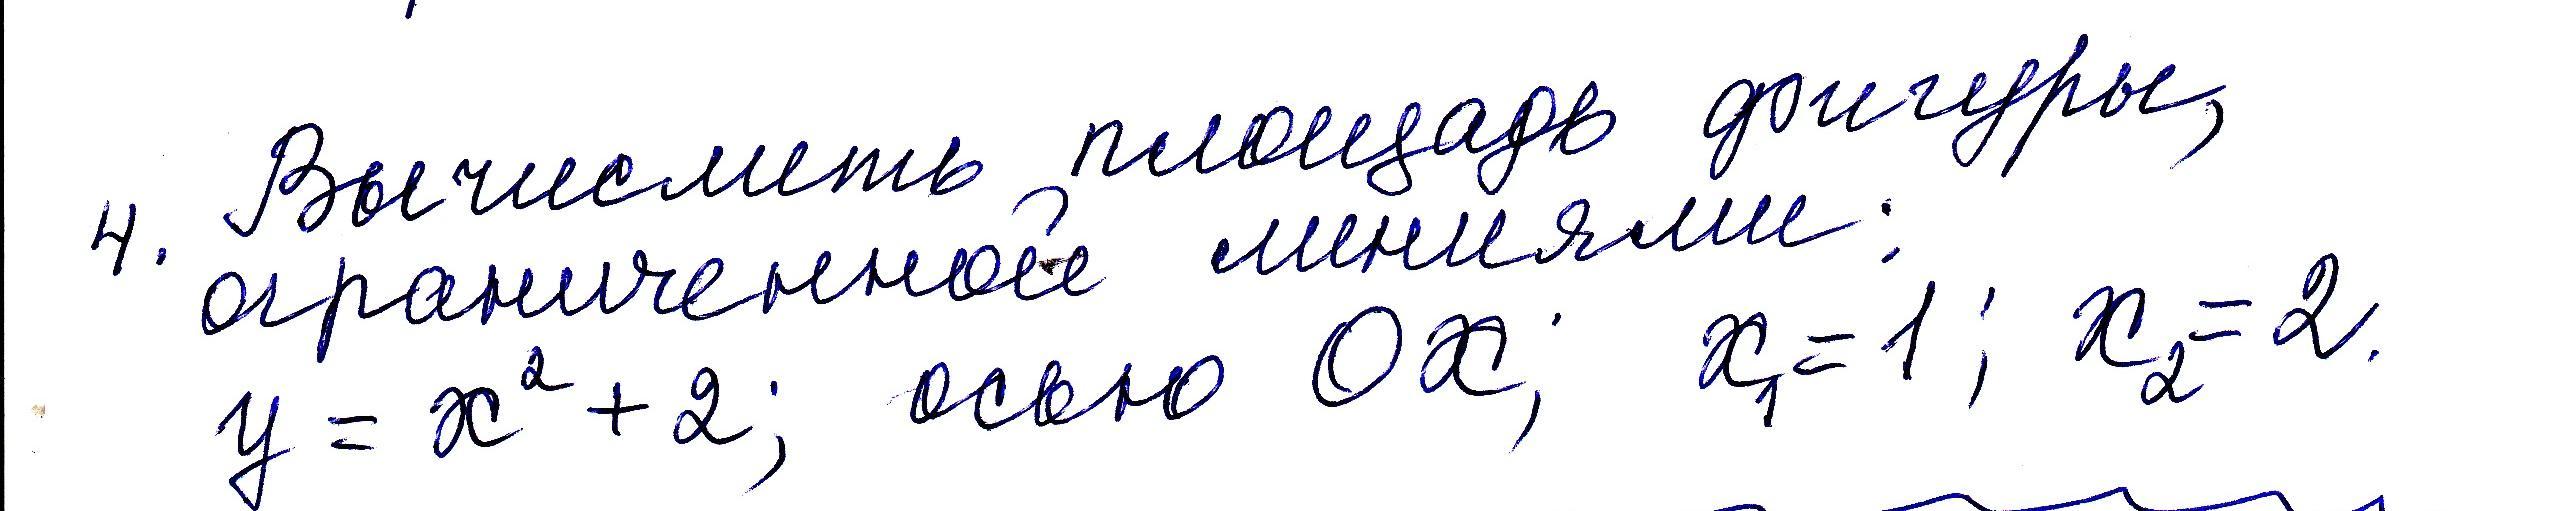 4. Вычислить площадь фигуры,
ограниченной линиями:
y = x² + 2; осью OX; x₁ = 1; x₂ = 2.